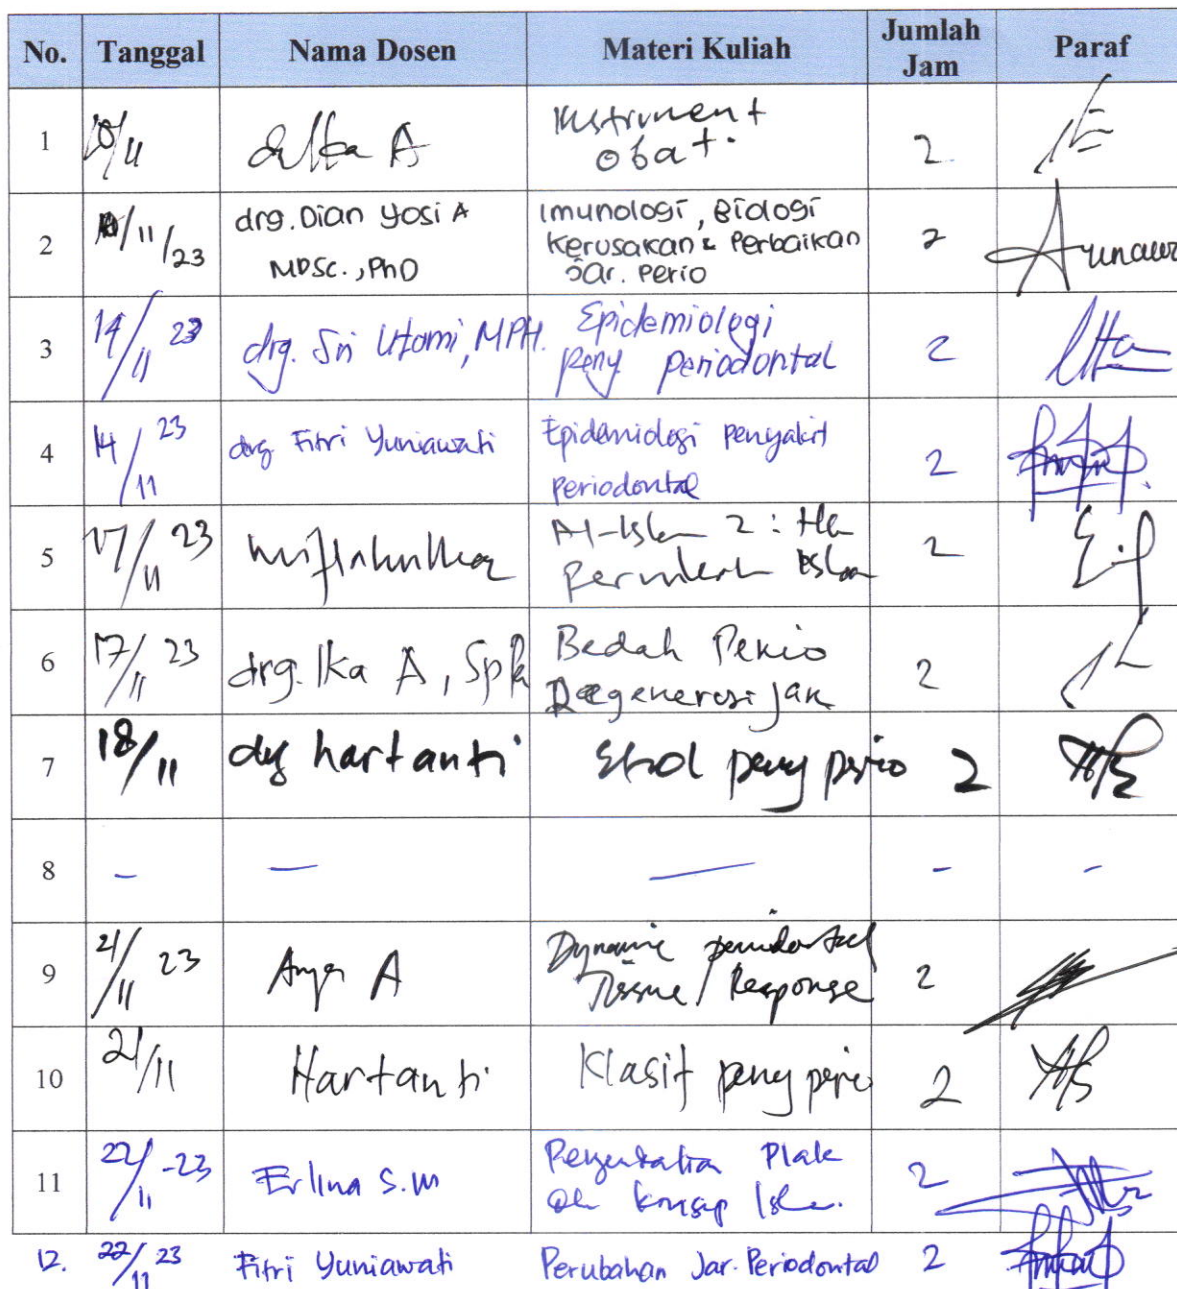 No. Tanggal Nama Dosen Materi Kuliah Jumlah Jam Paraf
1 10/11 A Instrument 2
Obat
2 /11/23 drg. Dian Yosi A Imunologi, Biologi 2
MDSc., PhD Kerusakan & Perbaikan
Jar. Perio
3 14/11 23 drg. Sri Utomi, MPH. Epidemiologi 2
peny periodontal
4 14/11 23 drg Fitri Yuniawati Epidemiologi penyakit 2
periodontal
5 17/11 23 Al-Islam 2: 2
Islam
6 17/11 23 drg. Ika A, Bedah Perio 2
Regenerasi jar
7 18/11 drg hartanti peny perio 2
8 - - - - -
9 21/11 23 A Dynamic periodontal 2
Tissue / Response
10 21/11 Hartanti Klasif peny perio 2
11 22/11 -23 Erlina S.M Plak 2
konsep
12. 22/11 23 Fitri Yuniawati Perubahan Jar. Periodontal 2